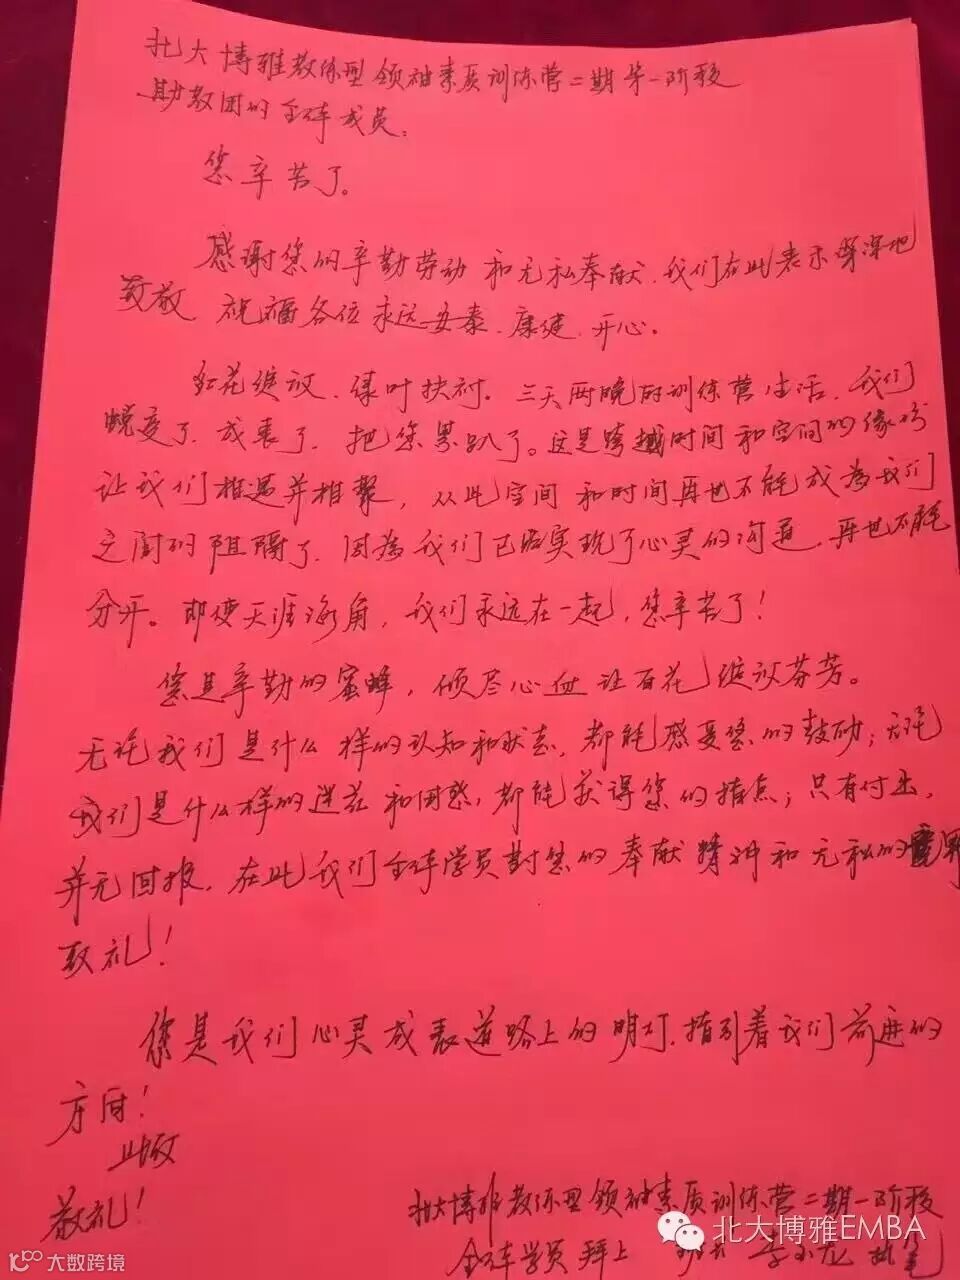 北大博雅教练型领袖素质训练营二期第一阶段
助教团的全体成员：
您辛苦了。
感谢您的辛勤劳动和无私奉献，我们在此表示深深地
致敬 祝福各位永远安泰、康健、开心。
红花绽放、绿叶扶衬。三天两晚的训练营生活，我们
蜕变了、成长了、把您累趴了。这是跨越时间和空间的缘份
让我们相遇并相聚，从此空间和时间再也不能成为我们
之间的阻隔了，因为我们已经实现了心灵的沟通，再也不能
分开。即使天涯海角，我们永远在一起，您辛苦了！
您是辛勤的蜜蜂，倾尽心血让百花绽放芬芳。
无论我们是什么样的认知和状态，都能感受您的鼓励；无论
我们是什么样的迷茫和困惑，都能获得您的指点；只有付出，
并无回报，在此我们全体学员对您的奉献精神和无私的境界
致礼！
您是我们心灵成长道路上的明灯，指引着我们前进的
方向！
此致
敬礼！
北大博雅教练型领袖素质训练营二期一阶段
全体学员 拜上 李玉龙 执笔
北大博雅EMBA
大数跨境